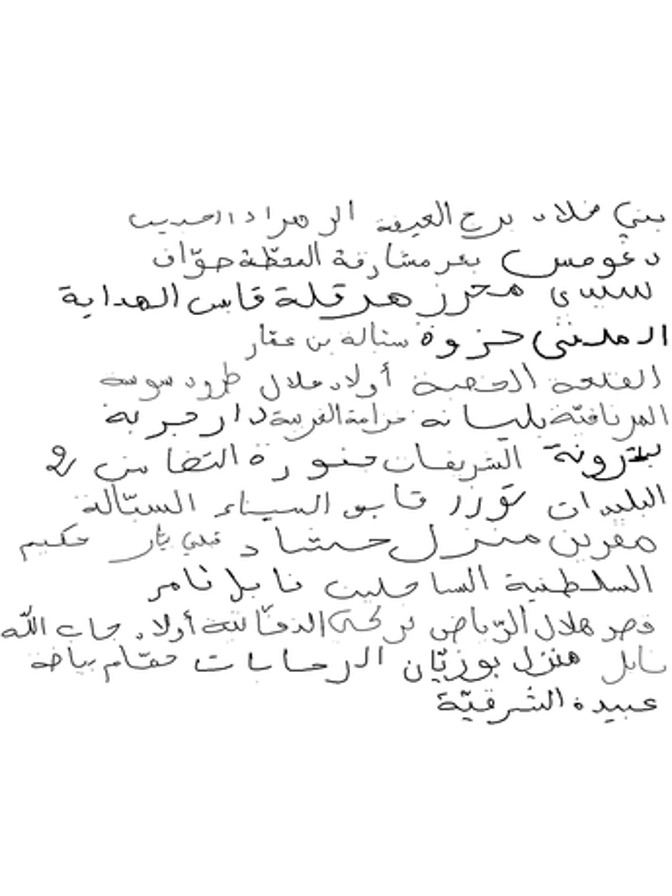 بني خلاد برج العيفة الزهراء الحبيب
دغومس بئر مشارقة المحطة صوّاف
سيدي محرز هرقلة قابس الهداية
المدني حزوة ستالة بن عقار
الفتحة الخصبة أولاد علال طرود سوسة
المرناقيّة بليانة خزامة الغربية دار جربة
بترونة الشريفات منورة التضامن 2
البليدات توزر قابس السيناء السبّالة
مقرين منزل حشاد قبلي بئر حكيم
السلطنية الساحلين نابل ثامر
قصر هلال الرّياض بركة الدقاللة أولاد جاب الله
نابل منزل بوزيّان الرحابات مقام بياضة
عبيدة الشرقيّة